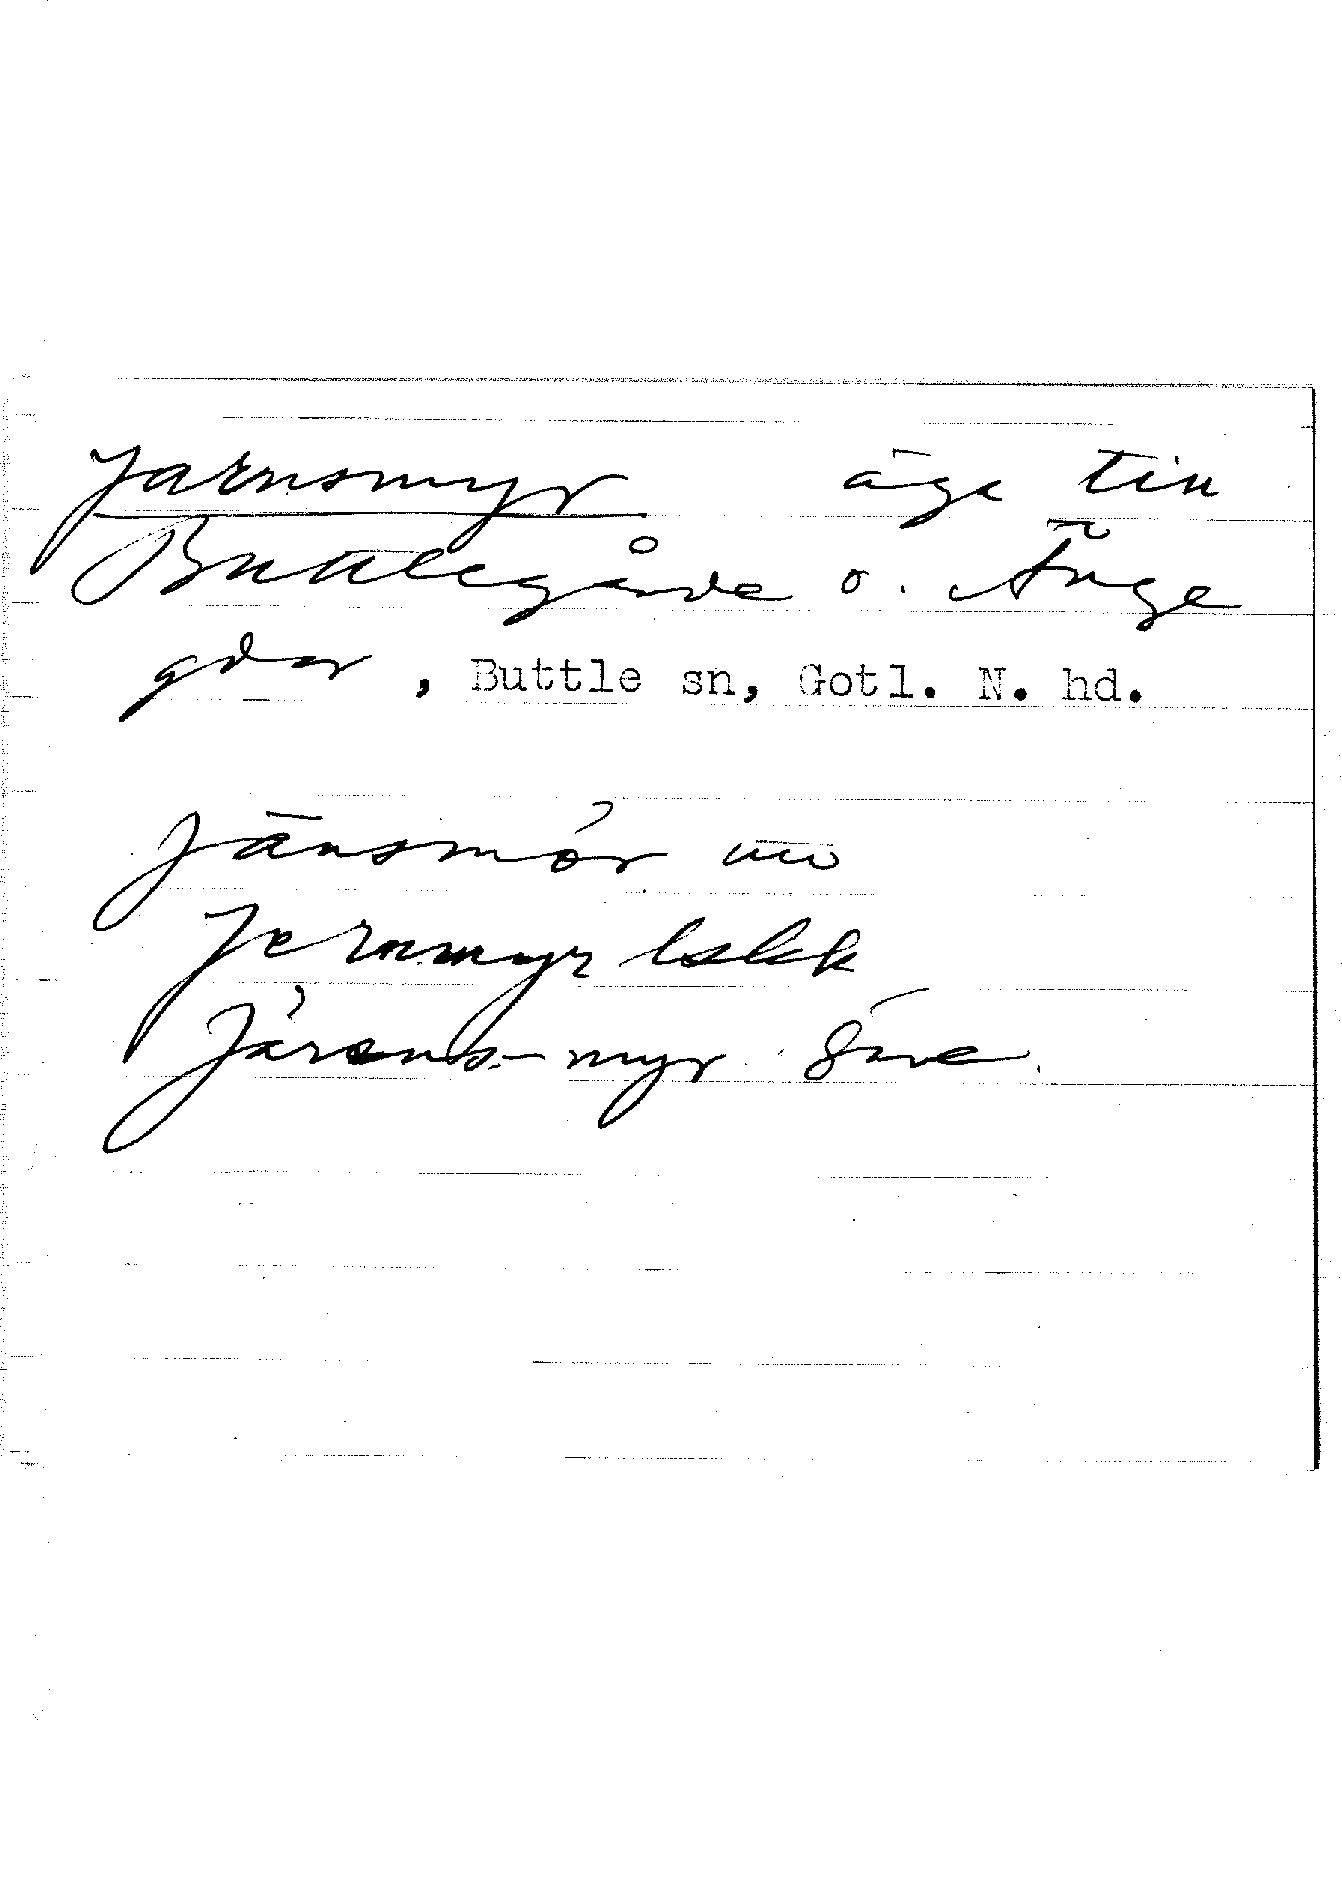 Jarnsmyr äga till
Buttlegårde o. Änge
gdar, Buttle sn, Gotl. N. hd.
Jänsmör
Jernmyr lskk
Järens-myr